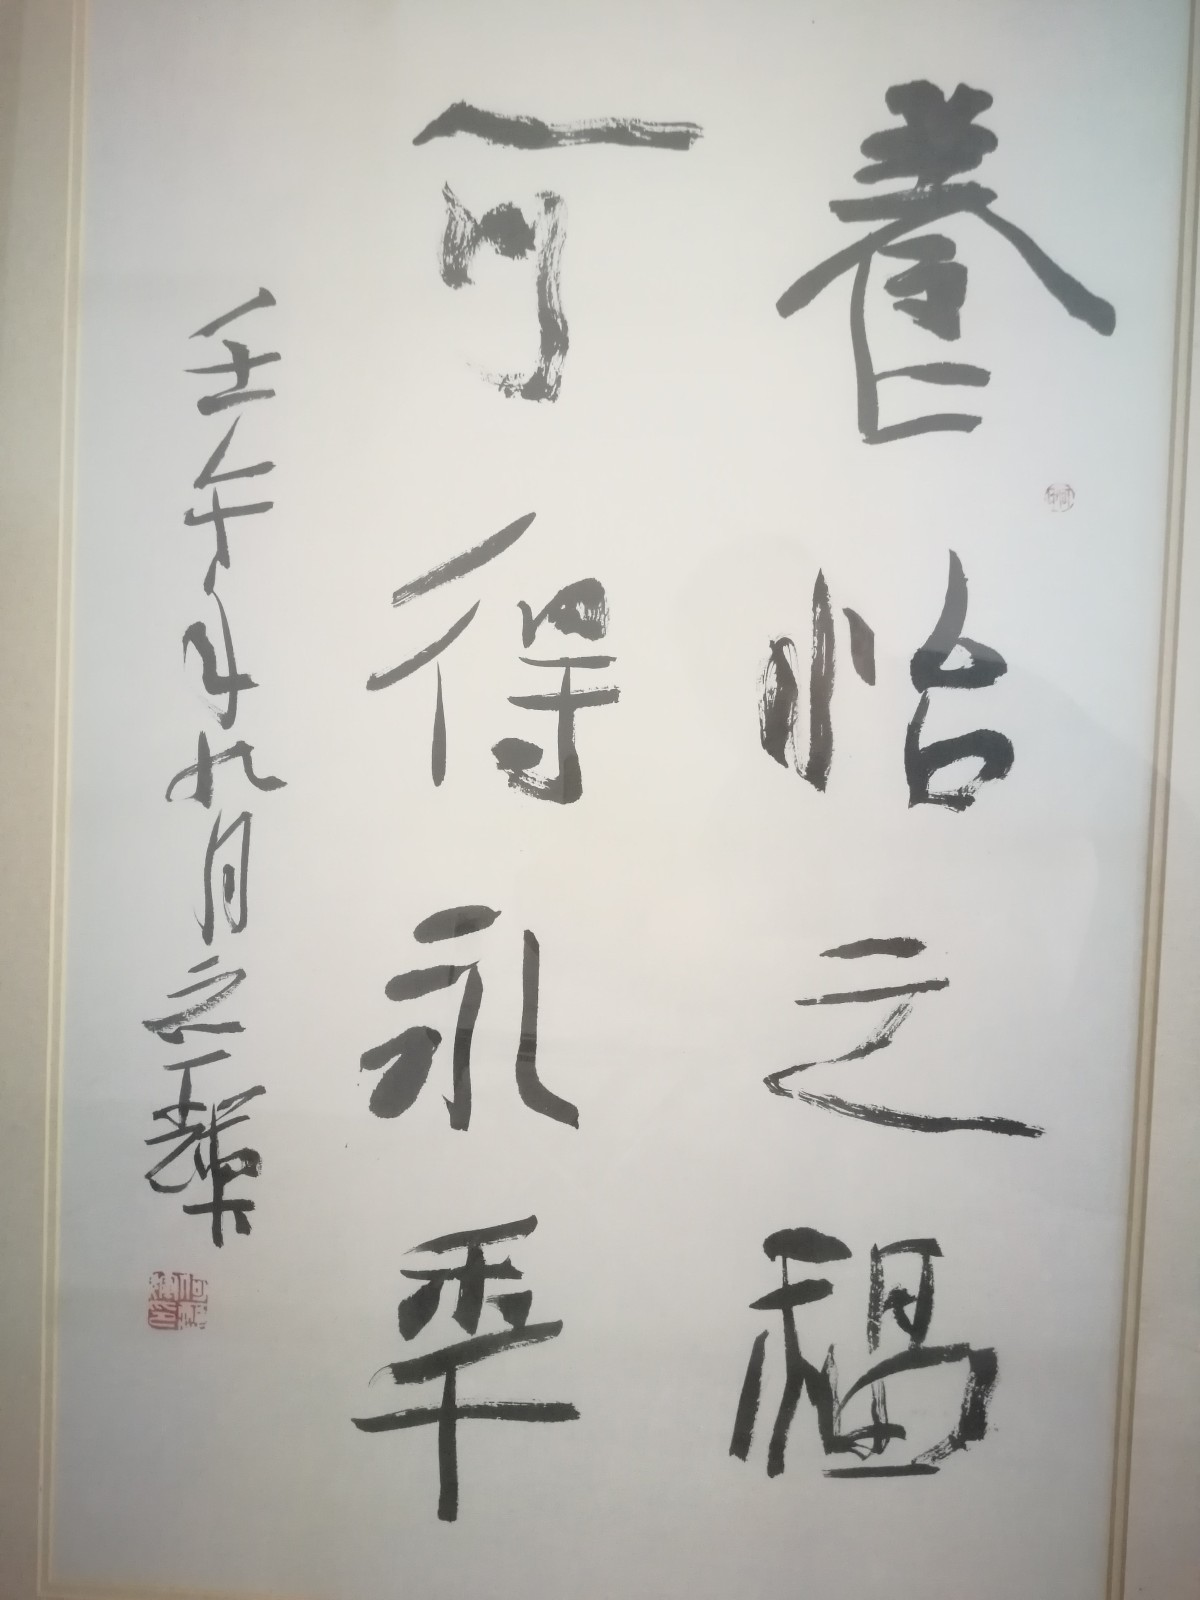 養怡之福
可得永年
壬午年九月之